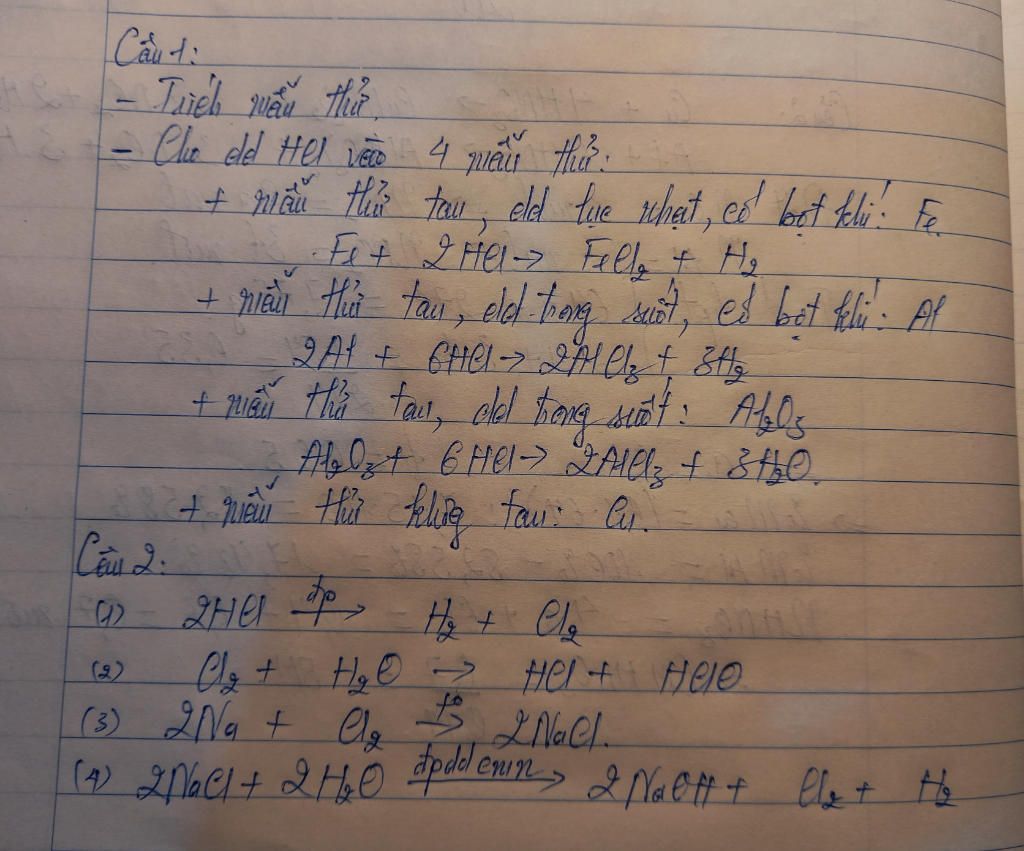 Câu 1:
- Trích mẫu thử.
- Cho dd HCl vào 4 mẫu thử:
+ mẫu thử tan, dd lục nhạt, có bọt khí: Fe.
Fe + 2HCl → FeCl₂ + H₂
+ mẫu thử tan, dd trong suốt, có bọt khí: Al
2Al + 6HCl → 2AlCl₃ + 3H₂
+ mẫu thử tan, dd trong suốt: Al₂O₃
Al₂O₃ + 6HCl → 2AlCl₃ + 3H₂O.
+ mẫu thử không tan: Cu.
Câu 2:
(1) 2HCl đp→ H₂ + Cl₂
(2) Cl₂ + H₂O → HCl + HClO
(3) 2Na + Cl₂ t°→ 2NaCl.
(4) 2NaCl + 2H₂O đpdd cmn→ 2NaOH + Cl₂ + H₂